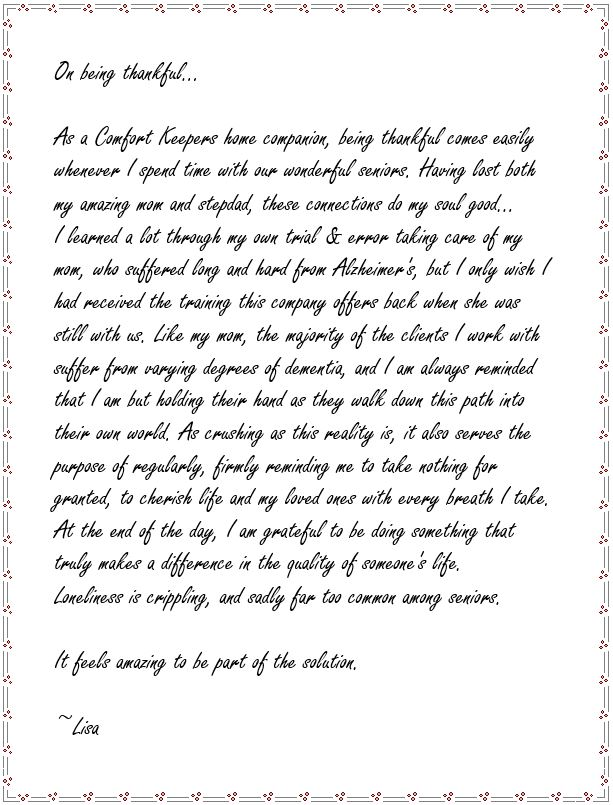 On being thankful...
As a Comfort Keepers home companion, being thankful comes easily
whenever I spend time with our wonderful seniors. Having lost both
my amazing mom and stepdad, these connections do my soul good...
I learned a lot through my own trial & error taking care of my
mom, who suffered long and hard from Alzheimer's, but I only wish I
had received the training this company offers back when she was
still with us. Like my mom, the majority of the clients I work with
suffer from varying degrees of dementia, and I am always reminded
that I am but holding their hand as they walk down this path into
their own world. As crushing as this reality is, it also serves the
purpose of regularly, firmly reminding me to take nothing for
granted, to cherish life and my loved ones with every breath I take.
At the end of the day, I am grateful to be doing something that
truly makes a difference in the quality of someone's life.
Loneliness is crippling, and sadly far too common among seniors.
It feels amazing to be part of the solution.
~Lisa